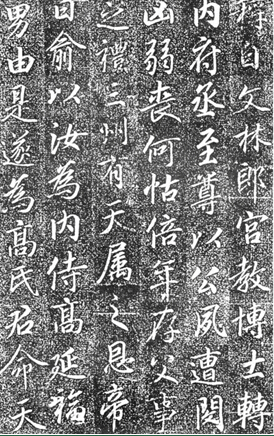 自文林郎官教博士轉
内府丞至尊以公夙遭閔
凶弱喪何怙倍年存父事
之禮三州有天属之恩帝
曰俞以汝為内侍高延福
男由是遂為高氏君命天